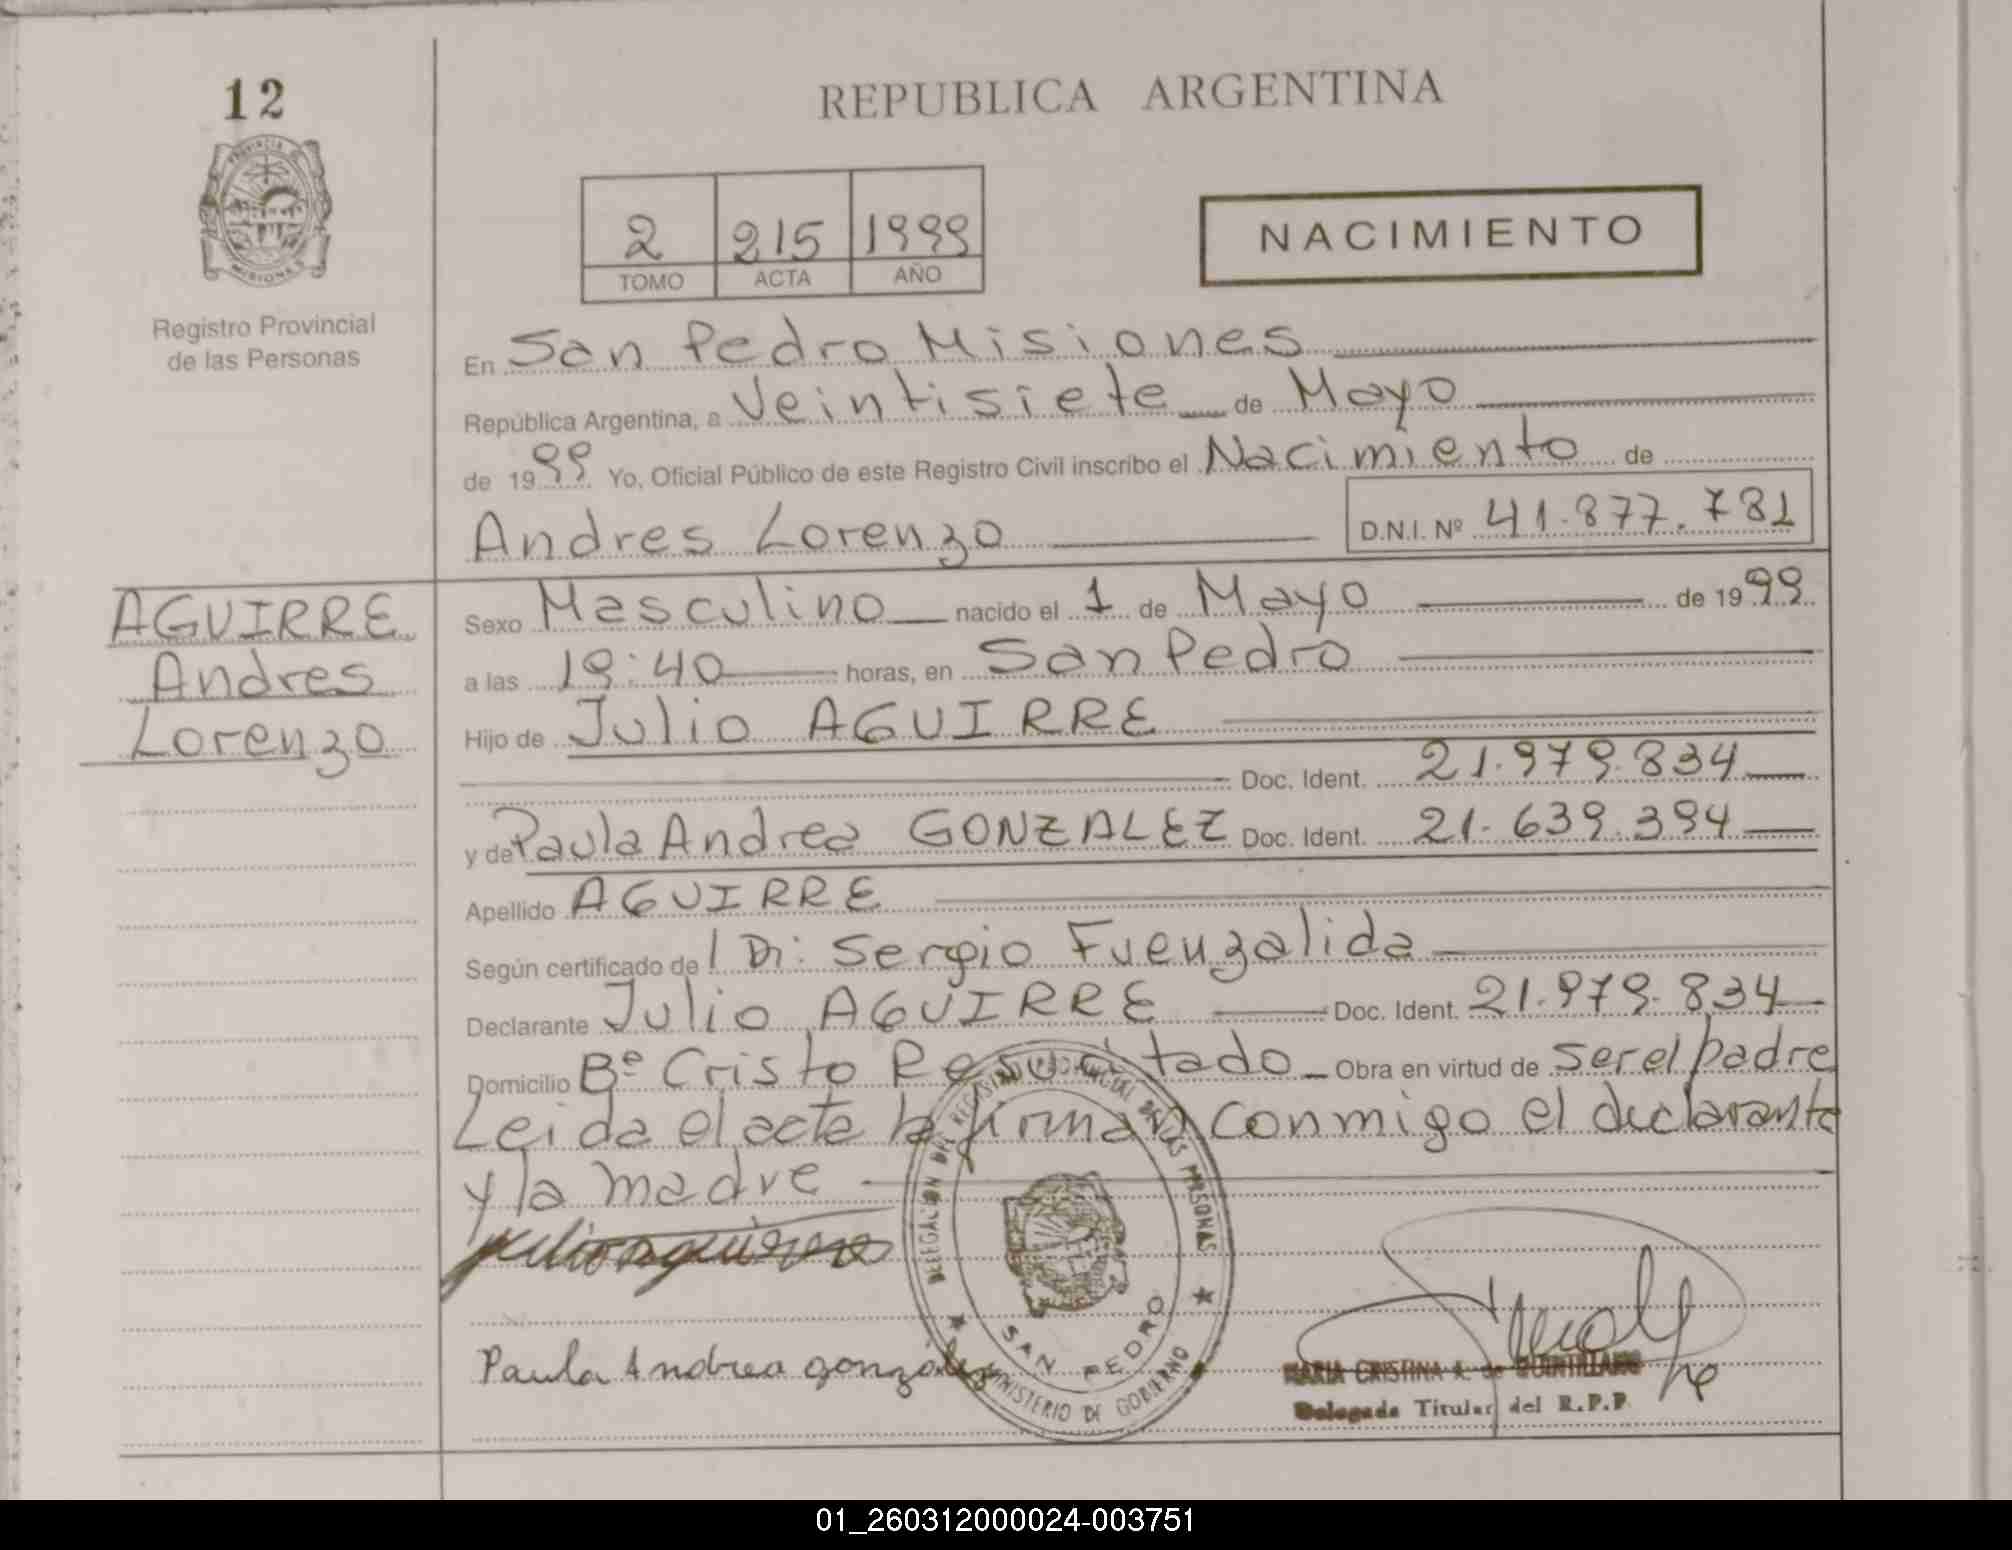 12
REPUBLICA ARGENTINA
PROVINCIA DE
MISIONES
Registro Provincial
de las Personas
2 215 1999
TOMO ACTA AÑO
NACIMIENTO
En San Pedro Misiones
República Argentina, a Veintisiete de Mayo
de 1999 Yo, Oficial Público de este Registro Civil inscribo el Nacimiento de
Andres Lorenzo D.N.I. Nº 41.877.781
AGUIRRE
Andres
Lorenzo
Sexo Masculino nacido el 1 de Mayo de 1999
a las 19:40 horas, en San Pedro
Hijo de Julio AGUIRRE
Doc. Ident. 21.979.834
y de Paula Andrea GONZALEZ Doc. Ident. 21.639.394
Apellido AGUIRRE
Según certificado de l Dr: Sergio Fuenzalida
Declarante Julio AGUIRRE Doc. Ident. 21.979.834
Domicilio Bº Cristo Resucitado Obra en virtud de ser el padre
Leida el acta la firman conmigo el declarante
y la madre
julio aguirre
Paula Andrea gonzález
DELEGACION DEL REGISTRO PROVINCIAL DE LAS PERSONAS
SAN PEDRO
MINISTERIO DE GOBIERNO
MARIA CRISTINA A. de QUINTILLANO
Delegada Titular del R.P.P.
01_260312000024-003751